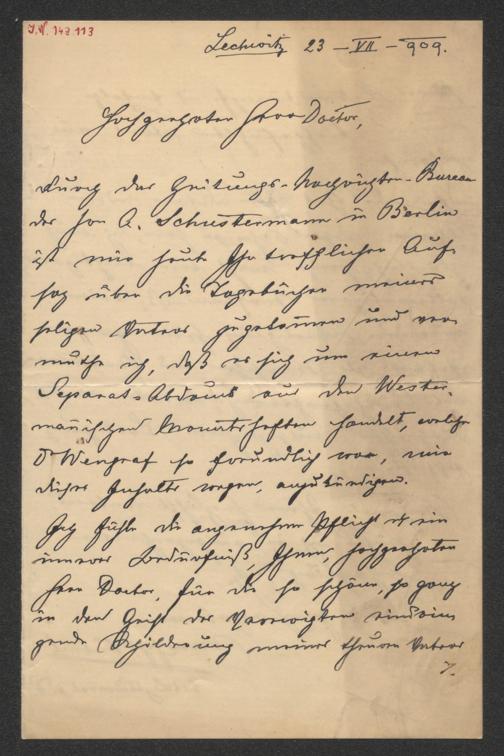 I.N. 143.113
Lechwitz 23 – VII – 909.
Hochgeehrter Herr Doctor,
Durch das Zeitungs-Nachrichten-Bureau
des Hrn A. Schustermann in Berlin
ist mir heute Ihr trefflicher Auf-
satz über die Tagebücher meines
seligen Vaters zugekommen und ver-
muthe ich, daß es sich um einen
Separat-Abdruck aus den Wester-
mannischen Monatsheften handelt, welche
Dr Wengraf so freundlich war, mir
dieses Inhalts wegen, anzukündigen.
Ich fühle die angenehme Pflicht & ein
inneres Bedürfniß, Ihnen, hochgeehrter
Herr Doctor, für die so schöne, so ganz
in den Geist des Verewigten eindrin-
gende Schilderung meines theuren Vaters